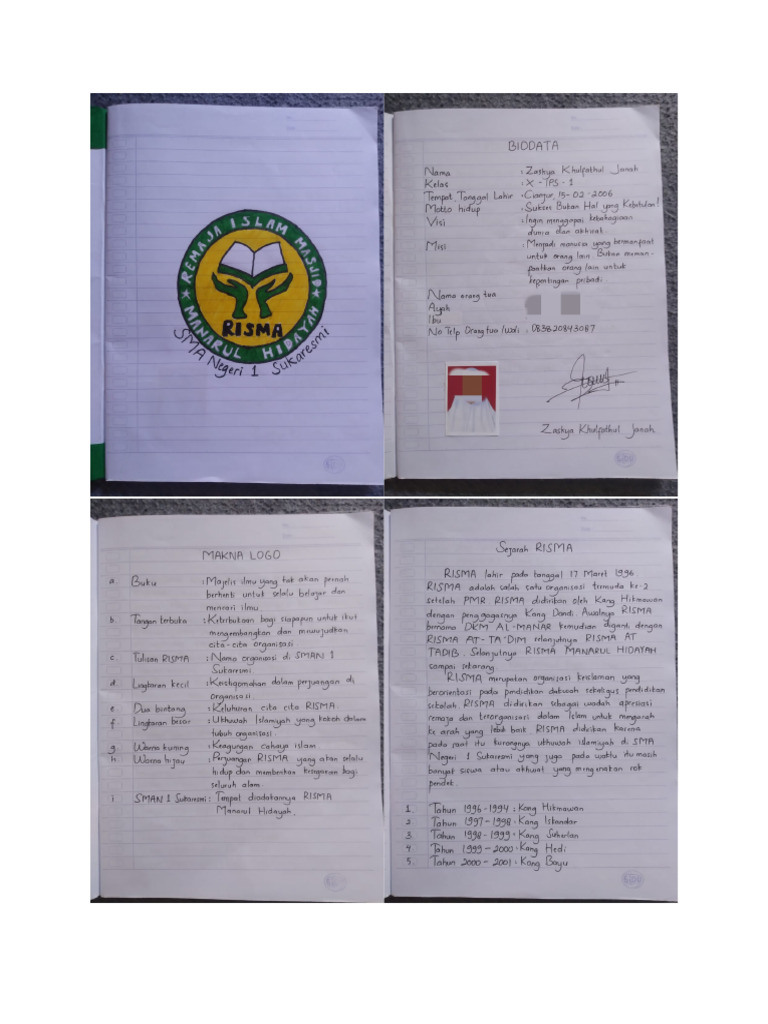 REMAJA ISLAM MASJID
MANARUL HIDAYAH
RISMA
SMA Negeri 1 Sukaresmi
BIODATA
Nama : Zaskya Khulpathul Janah
Kelas : X - IPS - 1
Tempat Tanggal Lahir : Cianjur, 15-02-2006
Motto hidup : Sukses Bukan Hal yang Kebetulan!
Visi : Ingin menggapai kebahagiaan
dunia dan akhirat.
Misi : Menjadi manusia yang bermanpaat
untuk orang lain Bukan meman-
paatkan orang lain untuk
kepentingan pribadi.
Nama orang tua
Ayah
Ibu
No Telp Orang tua/Wali : 083820843087
Zaskya Khulpathul Janah
MAKNA LOGO
a. Buku : Majelis ilmu yang tak akan pernah
berhenti untuk selalu belajar dan
mencari ilmu.
b. Tangan terbuka : Keterbukaan bagi siapapun untuk ikut
mengembangkan dan mewujudkan
cita-cita organisasi.
c. Tulisan RISMA : Nama organisasi di SMAN 1
Sukaresmi
d. Lingkaran kecil : Keistiqomahan dalam perjuangan di
organisasi.
e. Dua bintang : Keluhuran cita cita RISMA.
f. Lingkaran besar : Ukhuwah Islamiyah yang kokoh dalam
tubuh organisasi.
g. Warna kuning : Keagungan cahaya islam
h. Warna hijau : Perjuangan RISMA yang akan selalu
hidup dan memberikan kesegaran bagi
seluruh alam.
i SMAN 1 Sukaresmi : Tempat diadakannya RISMA
Manarul Hidayah.
Sejarah RISMA
RISMA lahir pada tanggal 17 Maret 1996
RISMA adalah salah satu organisasi termuda ke-2
setelah PMR RISMA didirikan oleh Kang Hikmawan
dengan penggagasnya Kang Dandi. Awalnya RISMA
bernama DKM AL-MANAR kemudian diganti dengan
RISMA AT-TA'DIM selanjutnya RISMA AT
TADIB. Selanjutnya RISMA MANARUL HIDAYAH
sampai sekarang.
RISMA merupakan organisasi keislaman yang
berorientasi pada pendidikan dakwah sekaligus pendidikan
sekolah. RISMA didirikan sebagai wadah apresiasi
remaja dan terorganisasi dalam Islam untuk mengarah
ke arah yang lebih baik RISMA didirikan karena
pada saat itu kurangnya ukhuwah islamiyah di SMA
Negeri 1 Sukaresmi yang juga pada waktu itu masih
banyak siswa atau akhwat yang mengenakan rok
pendek.
1. Tahun 1996-1994 : Kang Hikmawan
2. Tahun 1997-1998 : Kang Iskandar
3. Tahun 1998-1999 : Kang Suherlan
4. Tahun 1999-2000 : Kang Hedi
5. Tahun 2000-2001 : Kang Bayu